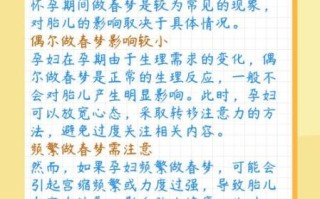 怀孕期间做春梦是较为常见的现象，
对胎儿的影响取决于具体情况。
偶尔做春梦影响较小
孕妇在孕期由于生理需求的变化，偶
尔做春梦是正常的生理反应，一般不
会对胎儿产生明显影响。此时，孕妇
可以放宽心态，采取转移注意力的方
法，避免过度关注相关内容。
频繁做春梦需注意
然而，如果孕妇频繁做春梦，可能会
引起宫缩频繁或力度过强，导致胎儿